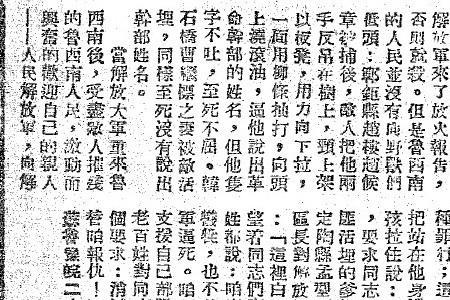 解放軍來了放火報告，
否則就殺。但是魯西南
的人民並沒有向野獸們
低頭：鄆鉅縣趙樓趙候
章被捕後，敵人把他兩
手反吊在樹上，頭上架
以板凳，用力向下拉，
一面用柳條抽打，向頭
上澆滾油，逼他說出革
命幹部的姓名，但他隻
字不吐，至死不屈。韓
石橋曹櫝標之妻被敵活
埋，同樣至死沒有說出
幹部姓名。
當解放大軍重來魯
西南後，受盡敵人摧殘
的魯西南人民，激動而
興奮的歡迎自己的親人
——人民解放軍，向解
種罪行；這
把站在他身
孩拉住說：
，要求同志
匪活埋的爹
定陶縣孟塱
區長對解放
：「這裡白
望着同志們
姓都說：咱
犧牲，也不
軍逼死。咱
支援自己部
老百姓對同
個要求：消
替咱報仇！